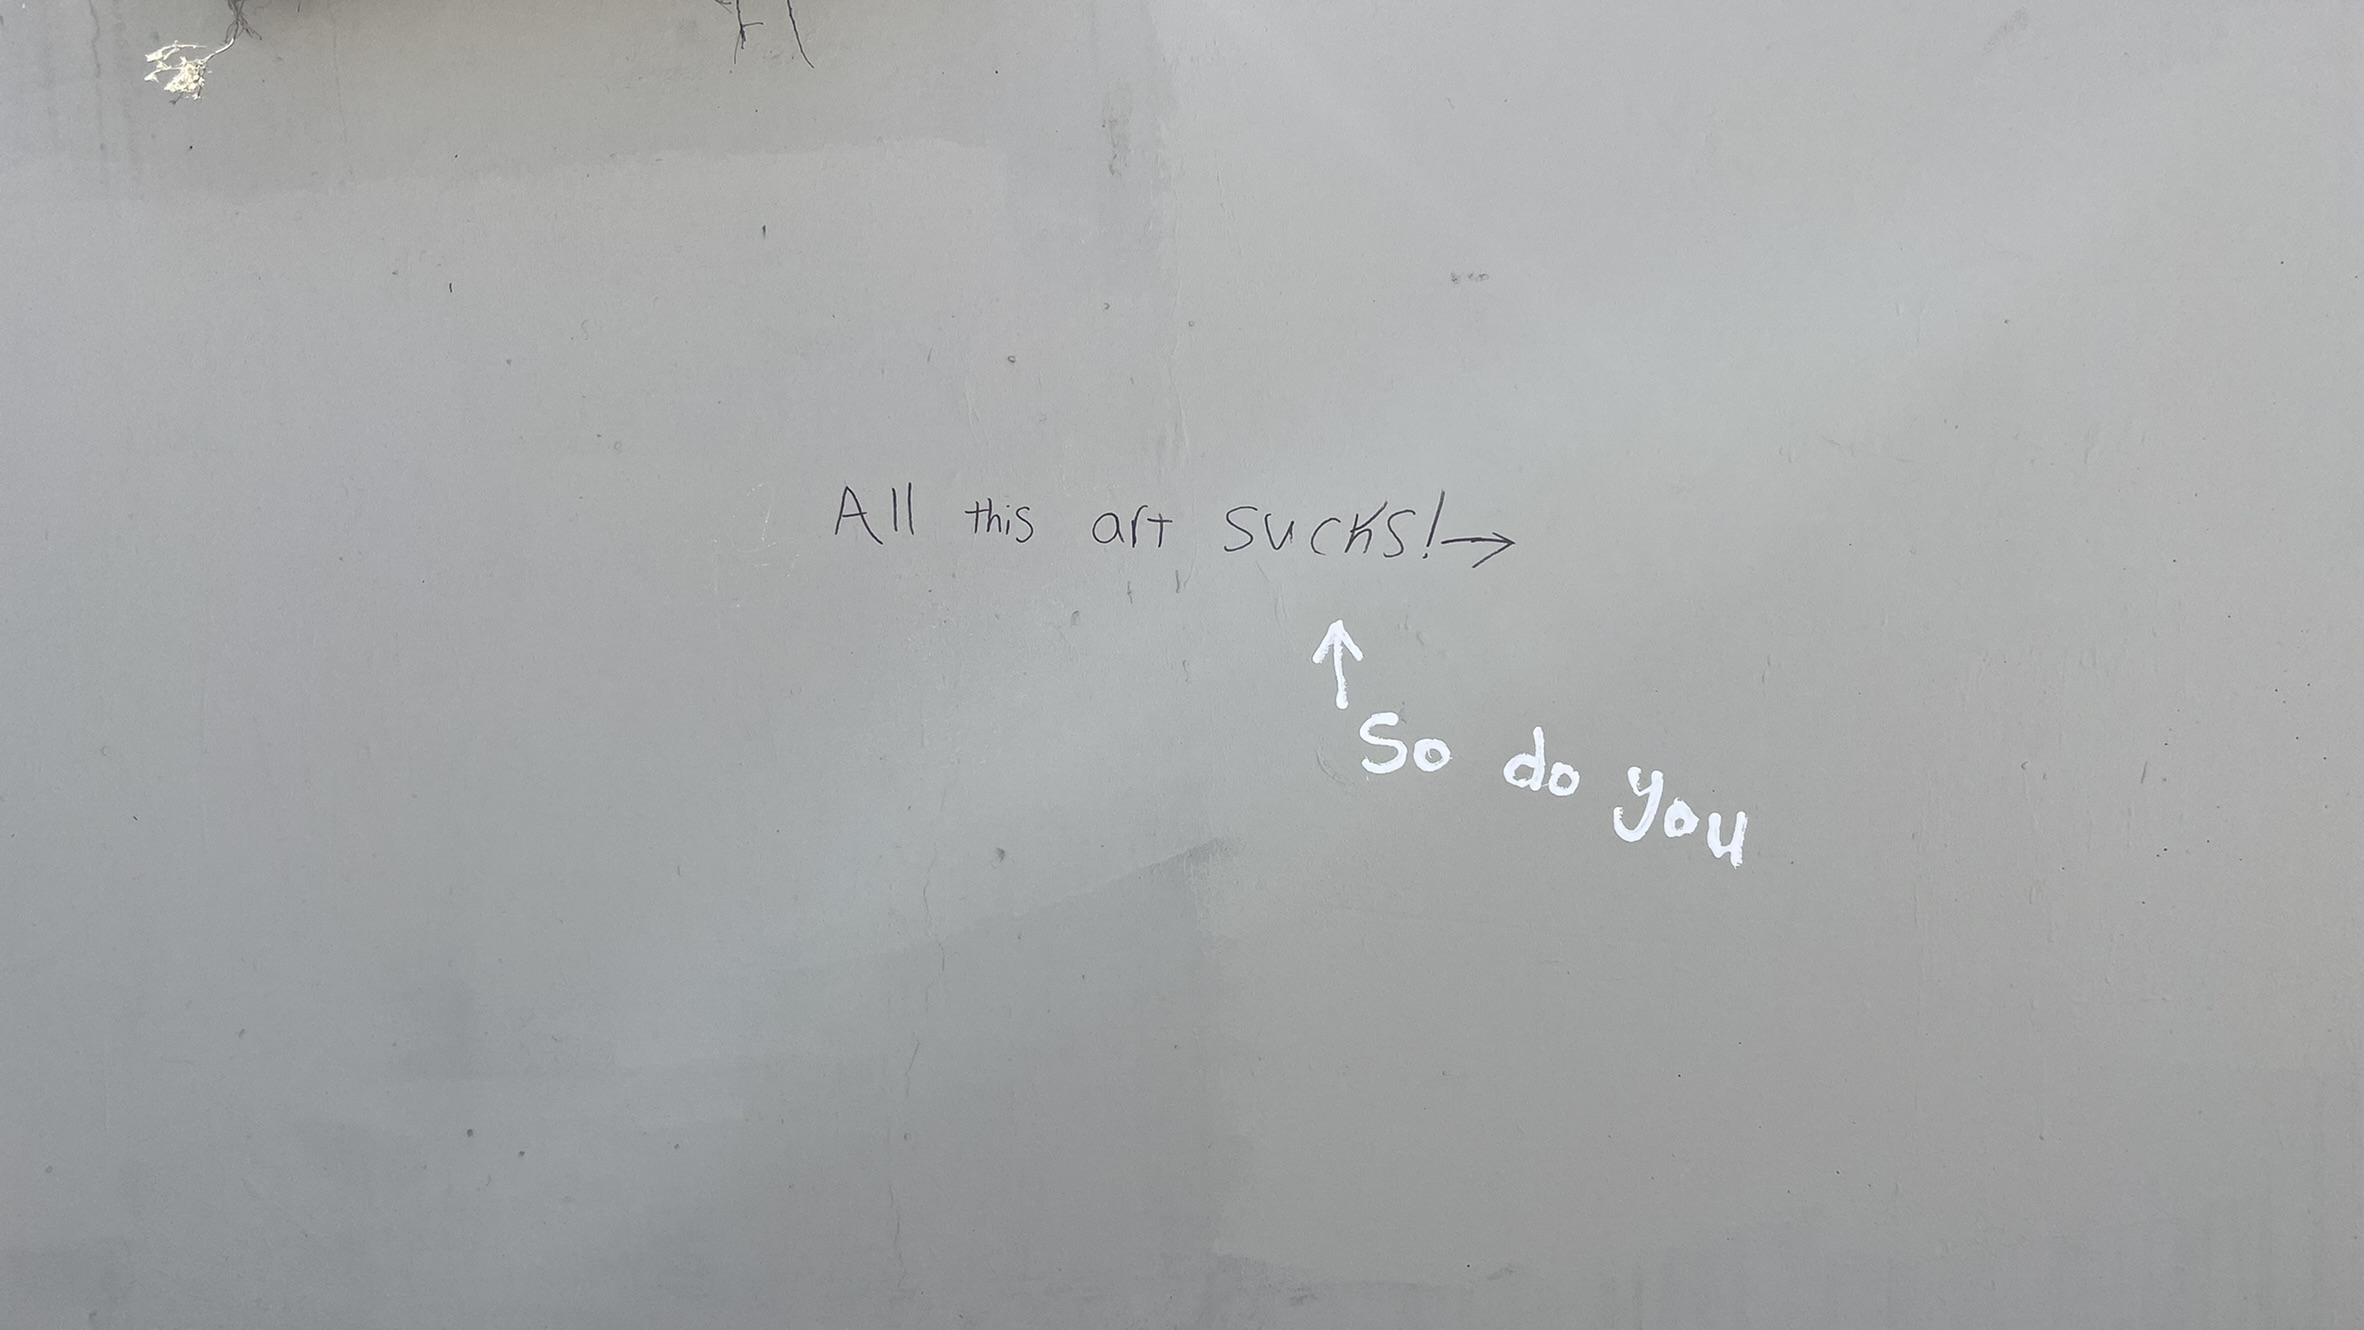 All this art sucks!→
↑
So do you